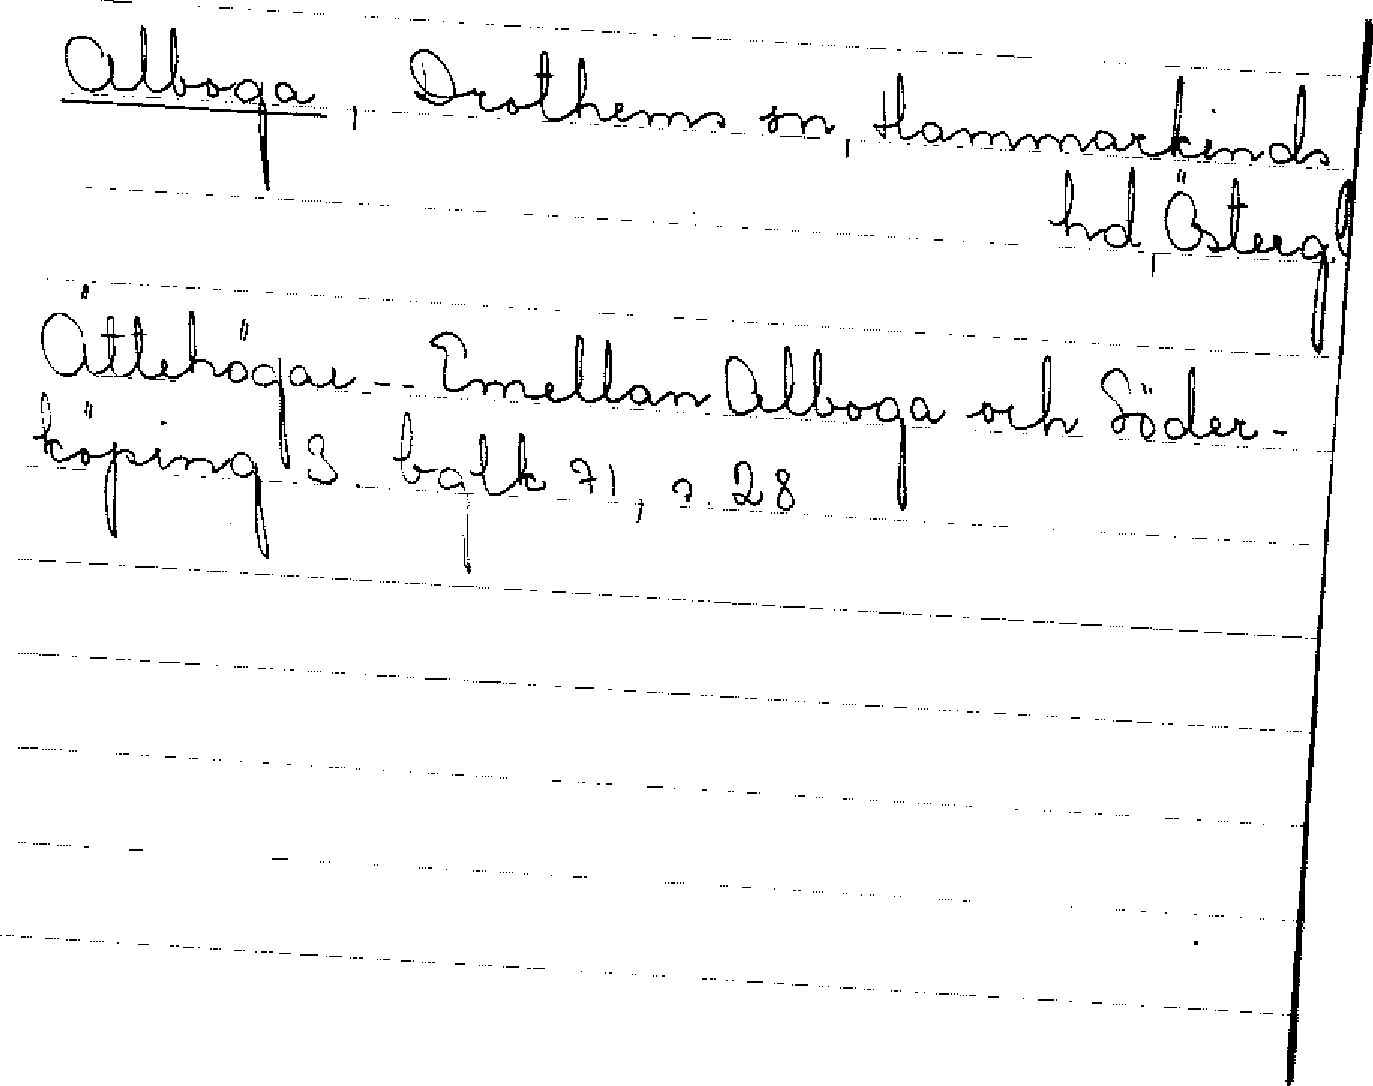 Alboga, Drothems sn, Hammarkinds
hd, Östergl
Ättehögar -- Emellan Alboga och Söder-
köping 3. balk 71, s. 28